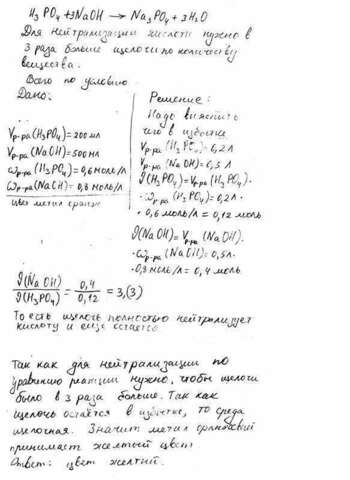 H₃PO₄ + 3NaOH → Na₃PO₄ + 3H₂O
Для нейтрализации кислоты нужно в
3 раза больше щелочи по количеству
вещества.
Всего по условию
Дано:
Vр-ра(H₃PO₄) = 200 мл
Vр-ра(NaOH) = 500 мл
ωр-ра(H₃PO₄) = 0,6 моль/л
ωр-ра(NaOH) = 0,8 моль/л
цвет метил оранж
Решение:
Надо выяснить
что в избытке
Vр-ра(H₃PO₄) = 0,2 л
Vр-ра(NaOH) = 0,5 л
ϑ(H₃PO₄) = Vр-ра(H₃PO₄)·
·ωр-ра(H₃PO₄) = 0,2 л·
· 0,6 моль/л = 0,12 моль
ϑ(NaOH) = Vр-ра(NaOH)·
·ωр-ра(NaOH) = 0,5 л·
·0,8 моль/л = 0,4 моль
ϑ(NaOH)/ϑ(H₃PO₄) = 0,4/0,12 = 3,(3)
То есть щелочь полностью нейтрализует
кислоту и еще остается
Так как для нейтрализации по
уравнению реакции нужно, чтобы щелочи
было в 3 раза больше. Так как
щелочь остаётся в избытке, то среда
щелочная. Значит метил оранжевый
принимает желтый цвет
Ответ: цвет желтый.